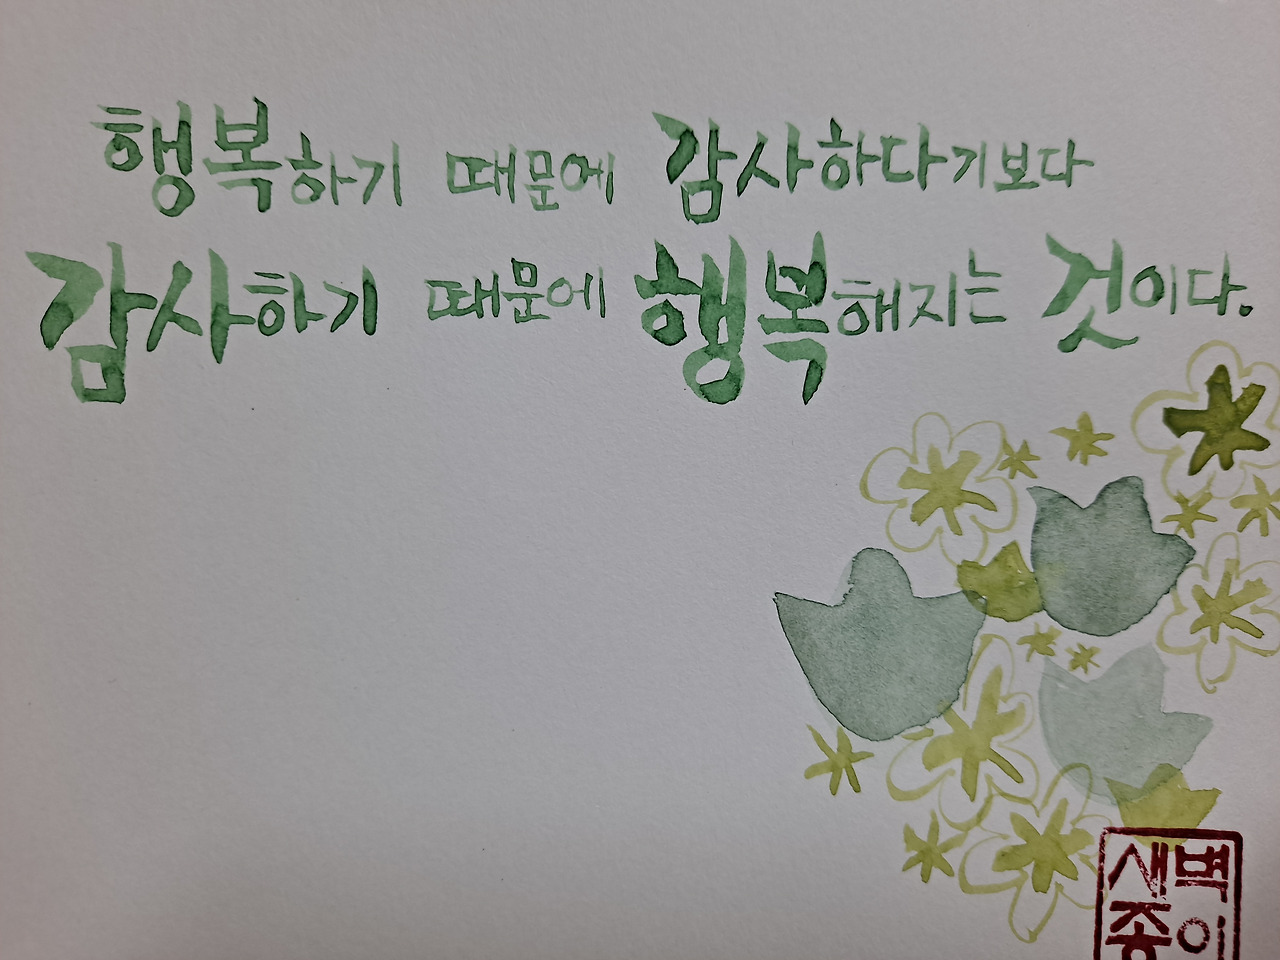 행복하기 때문에 감사하다기보다
감사하기 때문에 행복해지는 것이다.
새벽
종이